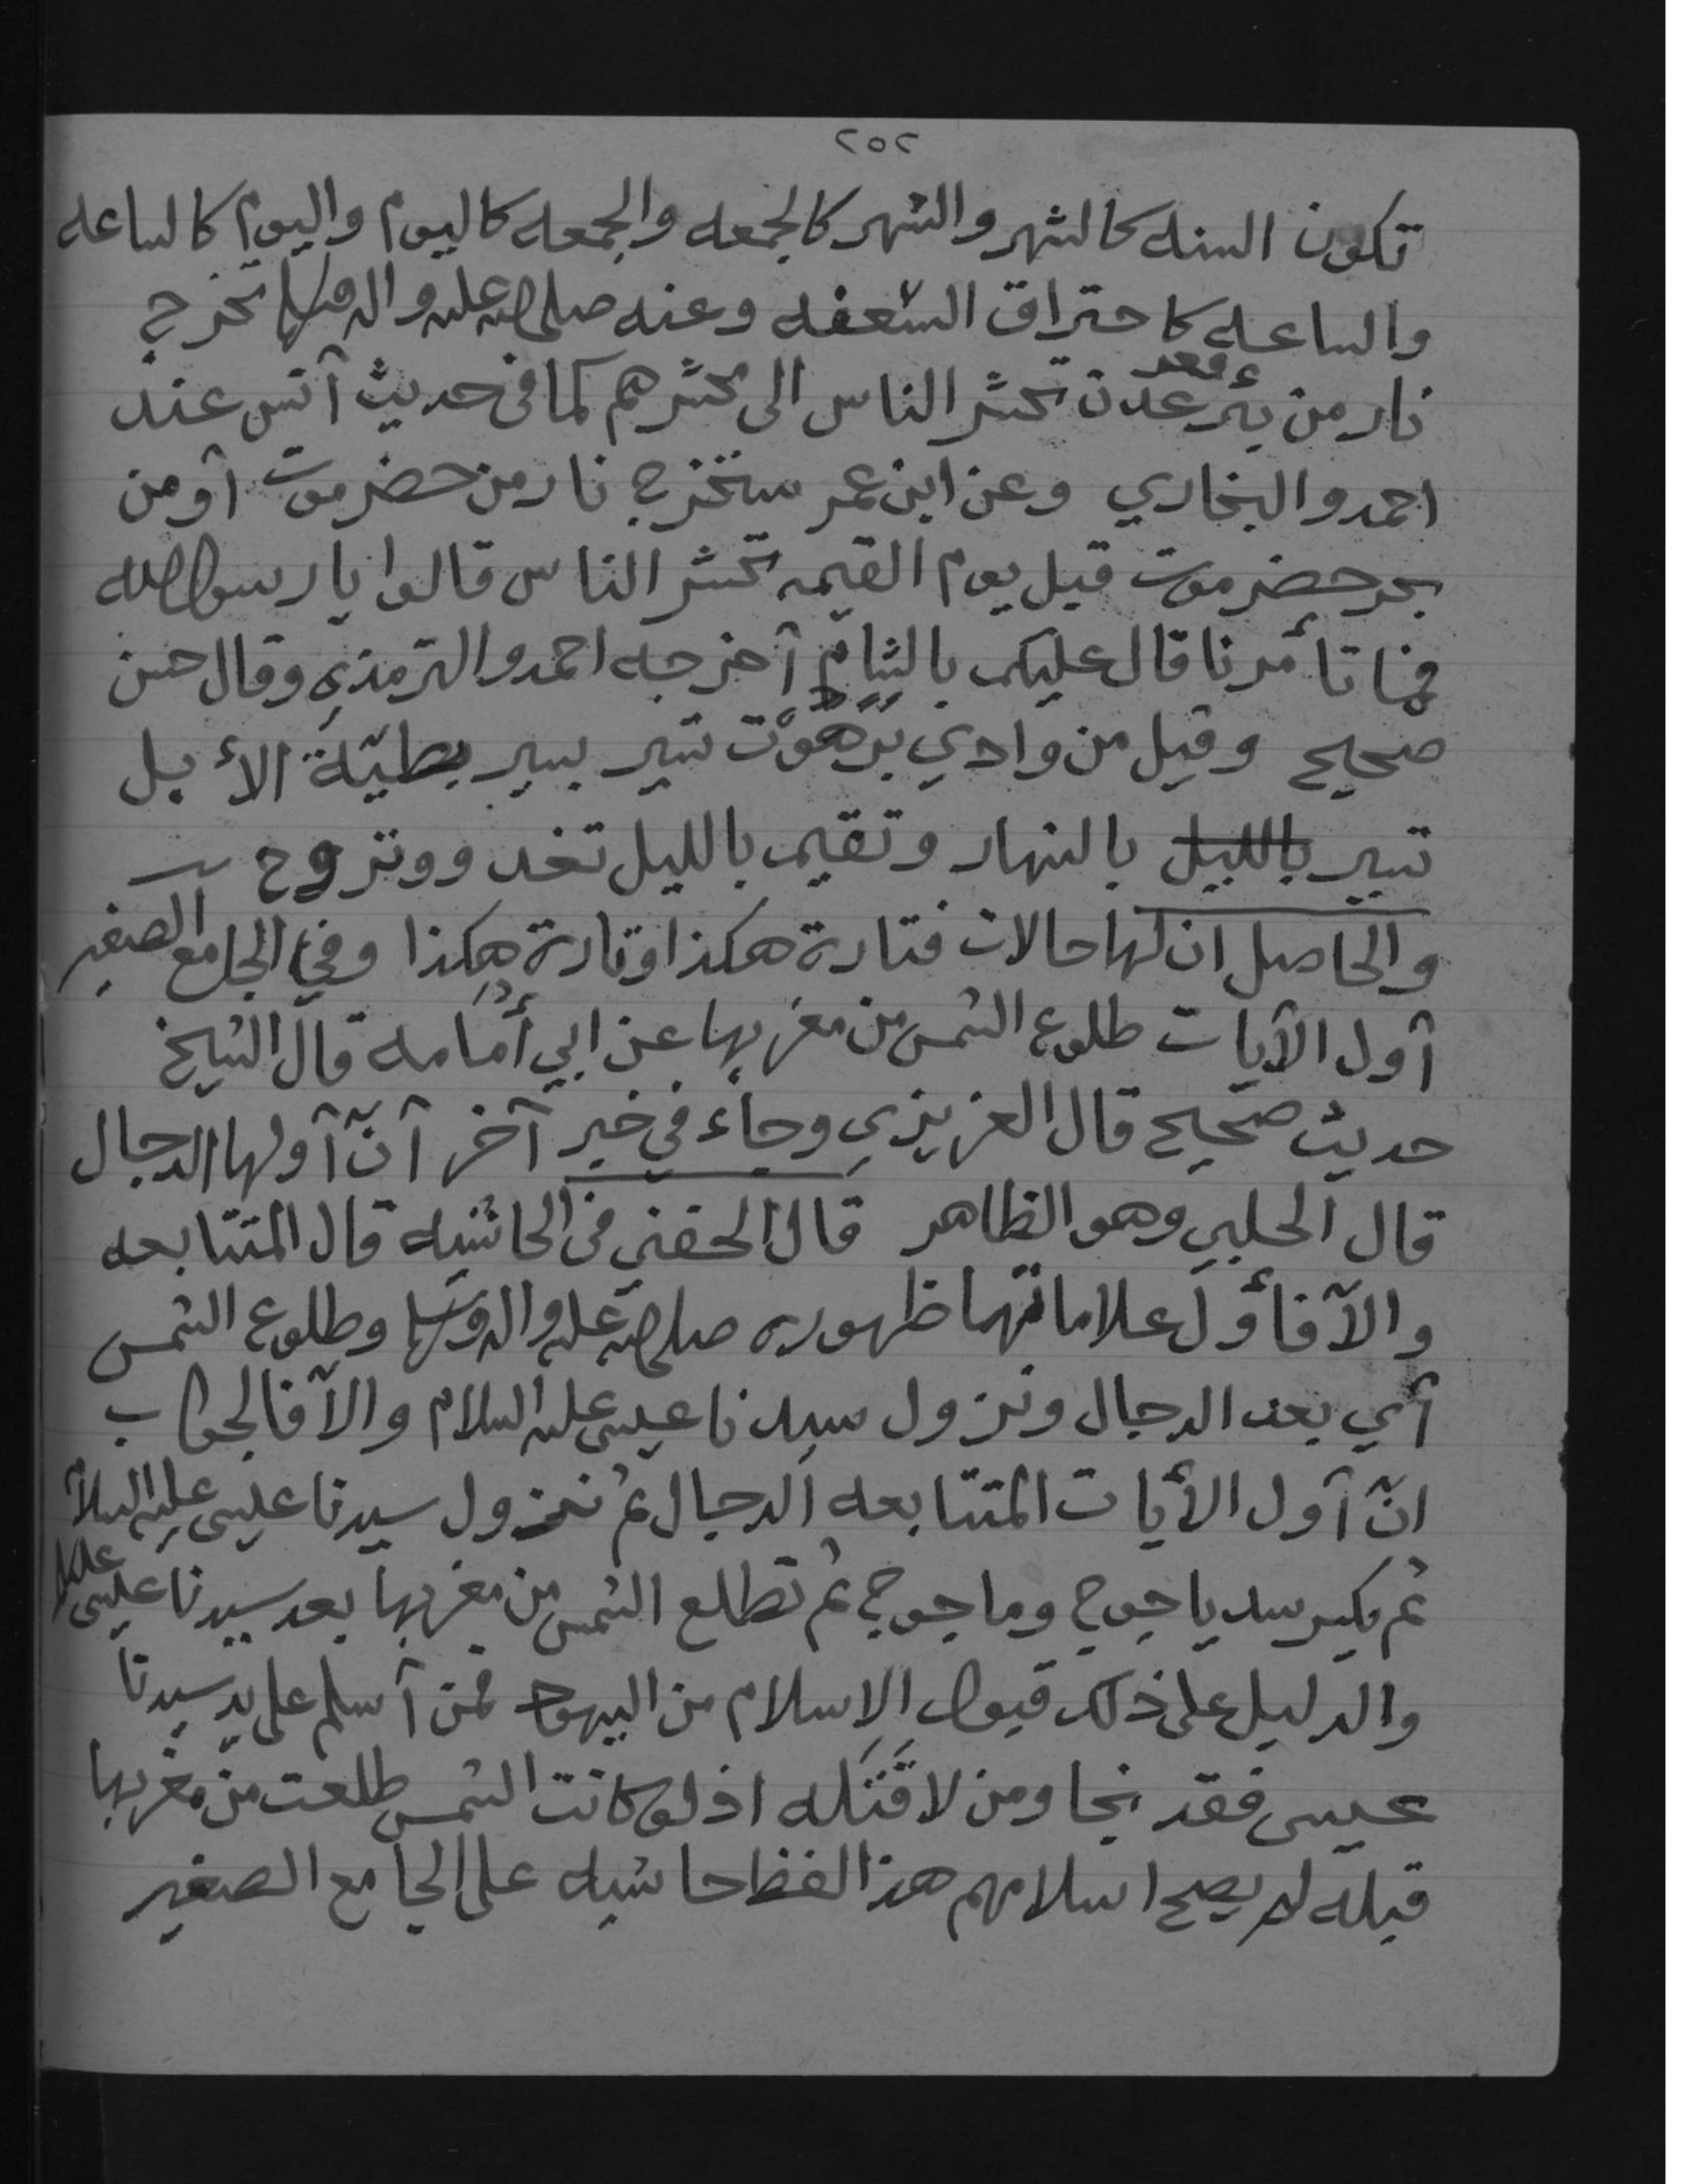 ٢٥٢
تكون السنه كالشهر والشهر كالجمعه والجمعه كاليوم واليوم كالساعه
والساعه كاحتراق السعفه وعنه صلى الله عليه واله وسلم تخرج
قعر
نار من بئر عدن تحشر الناس الى محشرهم كما في حديث آنس عند
احمد والبخاري وعن ابن عمر ستخرج نار من حضرموت آو من
بحر حضرموت قبل يوم القيمه تحشر الناس قالوا يا رسول الله
فما تأمرنا قال عليكم بالشام آخرجه احمد والترمذي وقال حسن
صحيح وقيل من وادي بَرَهُوْت تسير بسير بطيّة الأبل
تسير بالليل بالنهار وتقيم بالليل تغدو وتروح
والحاصل ان لها حالات فتارة هكذا وتارة هكذا وفي الجامع الصغير
آول الآيات طلوع الشمس من مغربها عن ابي أُمامه قال الشيخ
حديث صحيح قال العزيزي وجاء في خبر آخر آنّ آولها الدجال
قال الحليي وهو الظاهر قال الحفني في الحاشيه قال المتتابعه
والآ فأول علاماتهما ظهوره صلى الله عليه واله وسلم وطلوع الشمس
آي بعد الدجال ونزول سيدنا عيسى عليه السلام والآ فالجواب
انّ آول الأيات المتتابعه الدجال ثم نزول سيدنا عيسى عليه السلام
ثم يكسر سد ياجوج وماجوج ثم تطلع الشمس من مغربها بعد سيدنا عيسى
والدليل على ذلك قبول الإسلام من اليهود فمن آسلم على يد سيدنا
عيسى فقد نجا ومن لا قَتَله اذ لو كانت الشمس طلعت من مغربها
قبله لم يصح اسلامهم هذا لفظ حاشيه على الجامع الصغير